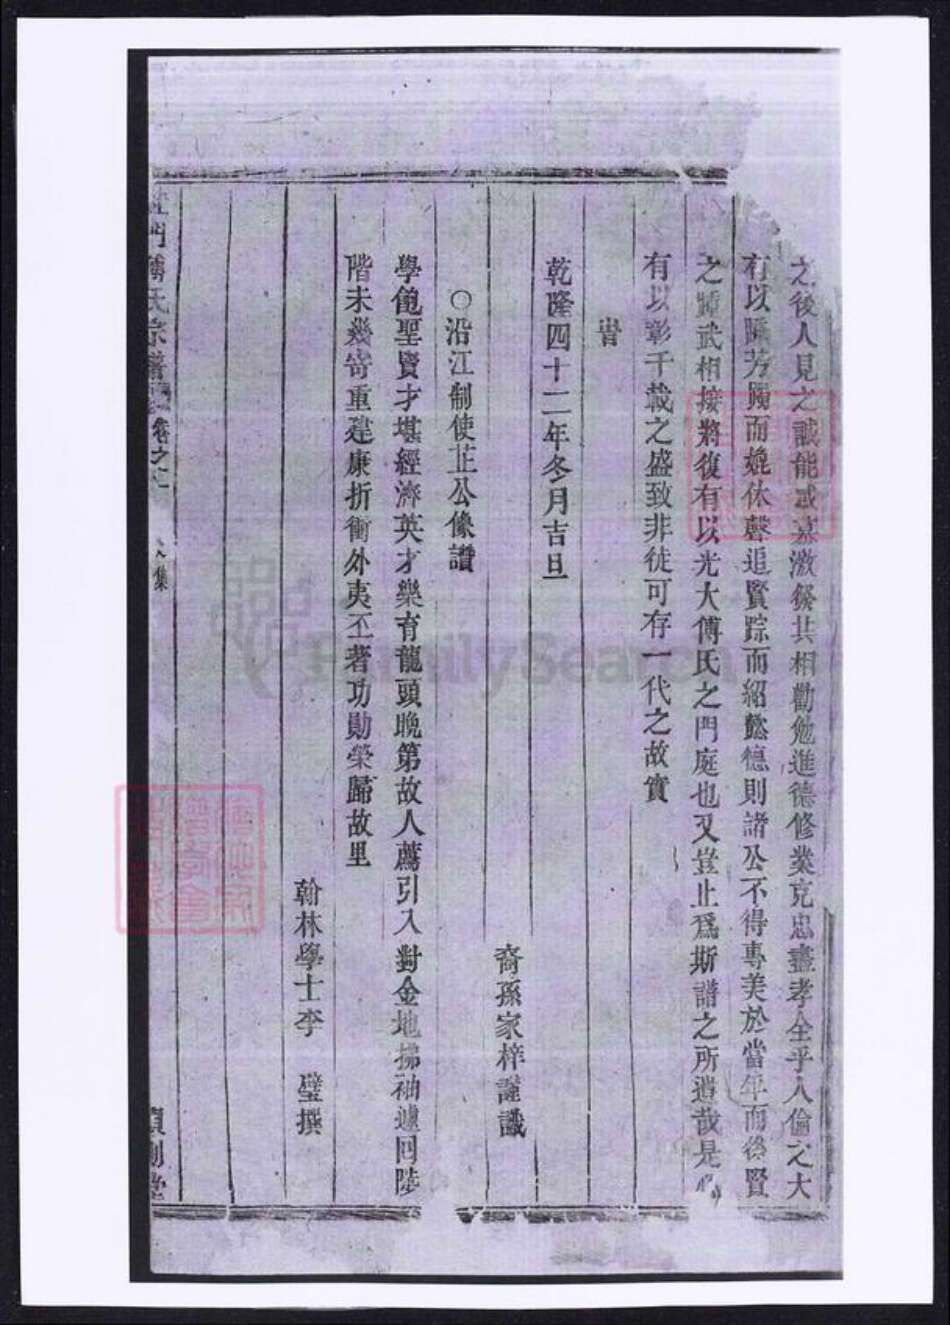 之後人見之誠能感慕激發共相勸勉進德修業克忠盡孝全乎人倫之大
有以躡芳躅而媲休聲追賢踪而紹懿德則諸公不得專美於當年而後賢
之踵武相接將復有以光大傅氏之門庭也又豈止爲斯譜之所遺哉是
有以彰千載之盛致非徒可存一代之故實
旹
乾隆四十二年冬月吉旦
裔孫家梓謹識
○沿江制使芷公像讚
學飽聖賢才堪經濟英才樂育龍頭晚第故人薦引入對金地拂袖遽回陟
階未幾寄重建康折衝外夷丕著功勛榮歸故里
翰林學士李 璧撰
門傅氏宗譜 卷之 集
FamilySearch